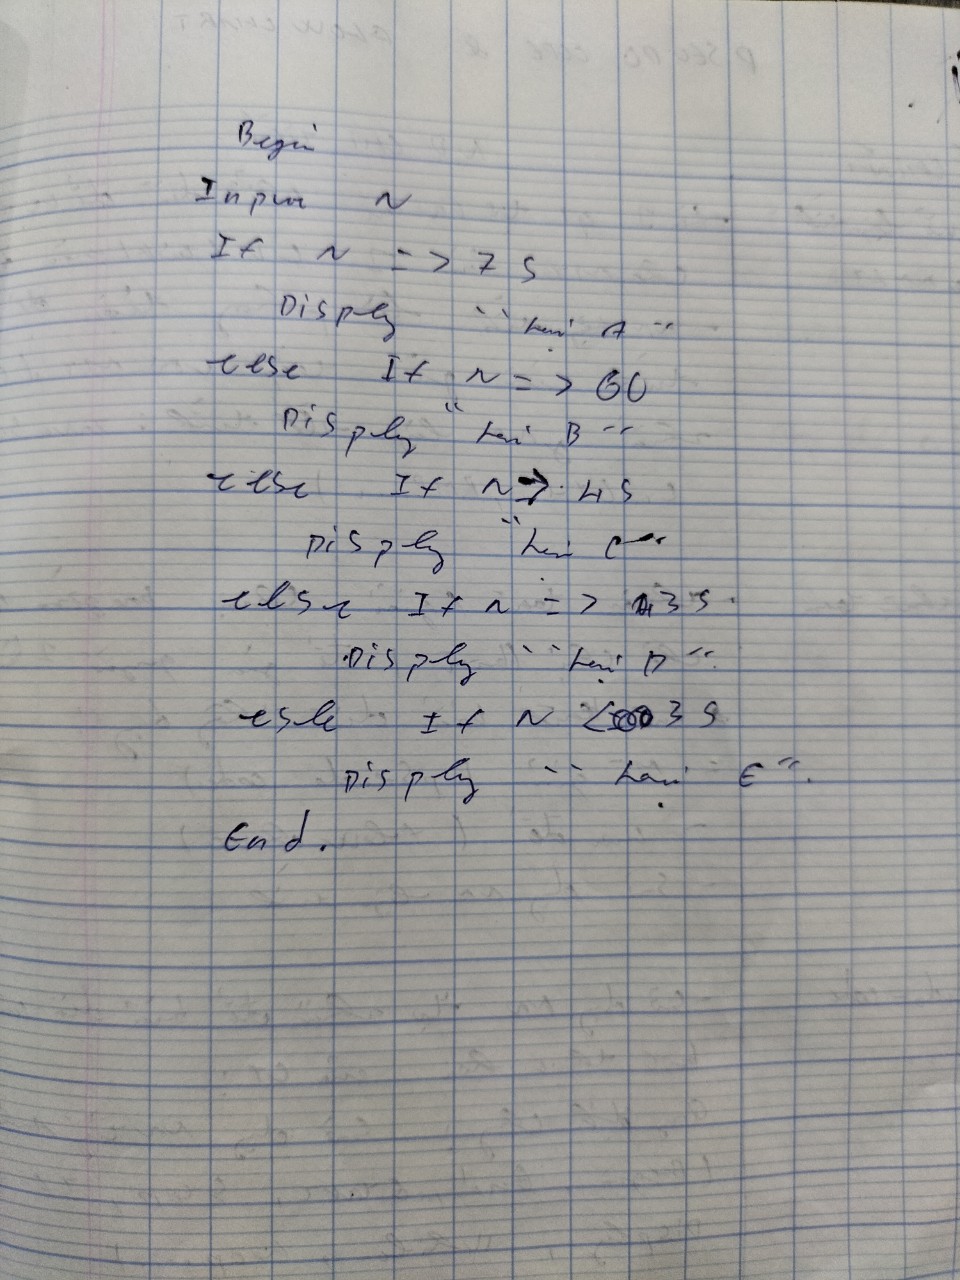 Begin
Input N
If N => 75
Display "Loại A"
else If N => 60
Display "Loại B"
else If N => 45
Display "Loại C"
else If N => 35
Display "Loại D"
esle If N < 35
Display "Loại E".
End.